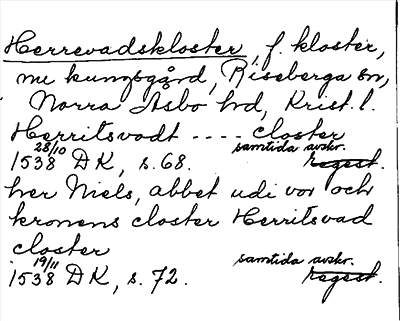 Herrevadskloster, f. kloster,
nu kungsgård, Riseberga sn,
Norra Åsbo hd, Krist. l.
Herritsvadt ---- closter
28/10 samtida avskr.
1538 DK, s. 68. regest.
her Niels, abbet udi vor och
kronens closter Herritsvad
closter
19/11 samtida avskr.
1538 DK, s. 72. regest.